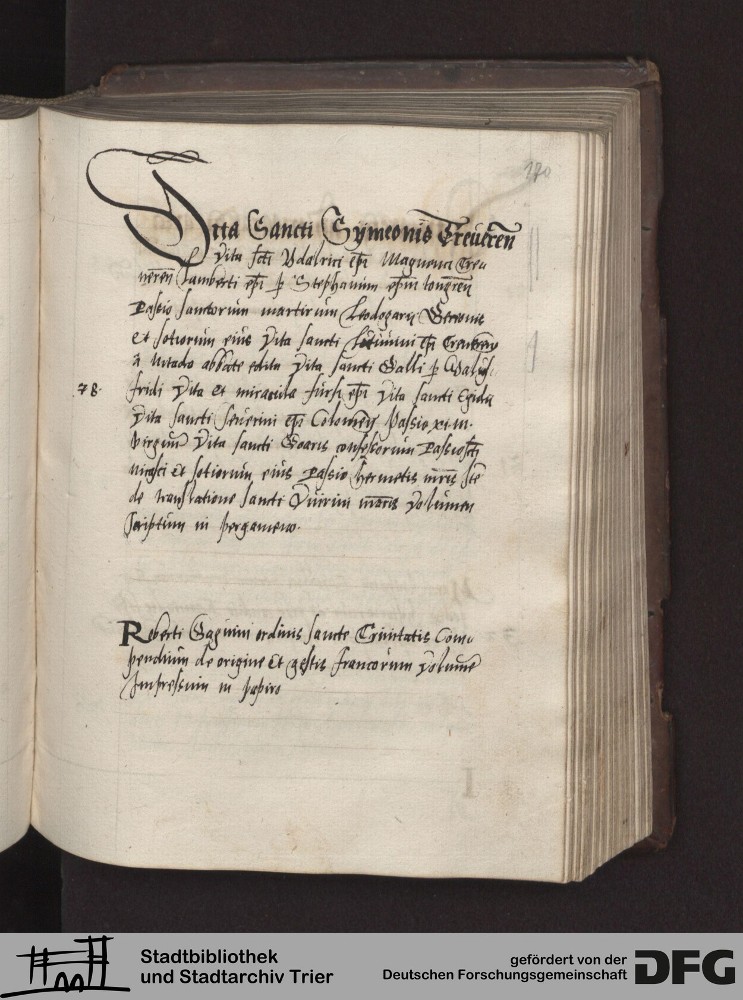 190
Vita Sancti Symeonis Treueren̄
Vita sc̄ti Vdalrici ep̄i Maguncz Treu
neren̄ Lamberti ep̄i p̱ Stephanum ep̄m longren̄
Passio sanctorum martirum Leodogarij Gereonis
et sotiorum eius Vita sancti ep̄i
a nitado abbate edita Vita sancti Galli p̱ Walas
78. fridi Vita et miracula fursei ep̄i Vita sancti Egidij
Vita sancti seuerini ep̄i Passio xi m.
virginū Vita sancti Goaris confessorum Passio sc̄ti
nicasij et sotiorum eius Passio hermetis m̄ris Itē
de translatione sancti Quirini m̄ris Volumen
scriptum in pergameno.
Roberti Gaguini ordinis sancte Trinitatis Com‐
pendium de origine et gestis francorum Volumē
Impressum in papiro
Stadtbibliothek
und Stadtarchiv Trier
gefördert von der
Deutschen Forschungsgemeinschaft
DFG